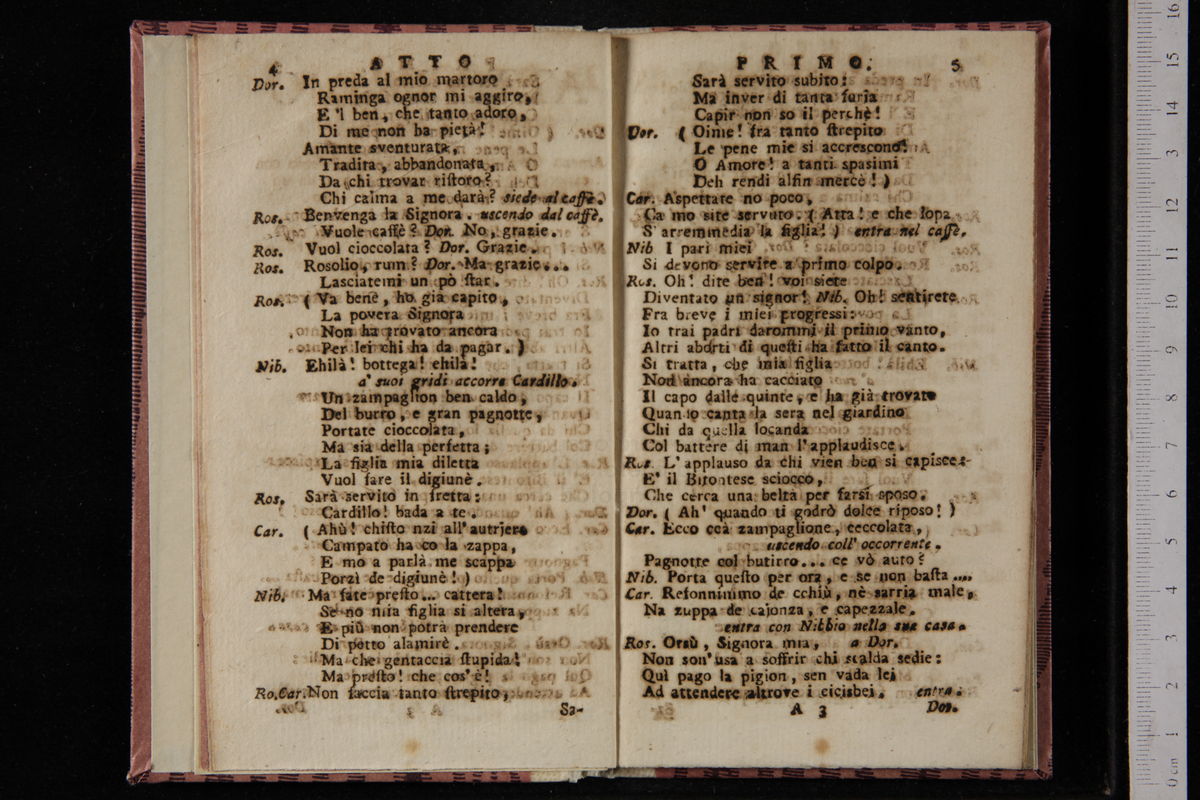 4 ATTO
Dor. In preda al mio martoro
Raminga ognor mi aggiro,
E 'l ben, che tanto adoro,
Di me non ha pietà!
Amante sventurata,
Tradita, abbandonata,
Da chi trovar riſtoro?
Chi calma a me darà? siede al caffè.
Ros. Benvenga la Signora. uscendo dal caffè.
Vuole caffè? Dor. No, grazie.
Ros. Vuol cioccolata? Dor. Grazie.
Ros. Rosolio, rum? Dor. Ma grazie...
Lasciatemi un pò ſtar.
Ros. (Va benè, ho già capito,
La povera Signora
Non ha trovato ancora
Per lei chi ha da pagar.)
Nib. Ehilà! bottega! ehilà!
a' suoi gridi accorre Cardillo.
Un zampaglion ben caldo,
Del burro, e gran pagnotte,
Portate cioccolata,
Ma sia della perfetta;
La figlia mia diletta
Vuol fare il digiunè.
Ros. Sarà servito in fretta:
Cardillo! bada a te.
Car. (Ahù! chiſto nzi all'autrjere
Campato ha co la zappa,
E mo a parlà me scappa
Porzì de digiunè!)
Nib. Ma fate preſto... cattera!
Se no mia figlia si altera,
E più non potrà prendere
Di petto alamirè.
Ma che gentaccia ſtupida!
Ma preſto! che cos'è!
Ro.Car. Non faccia tanto ſtrepito,
Sa-
PRIMO. 5
Sarà servito subito:
Ma inver di tanta furia
Capir non so il perchè!
Dor. (Oimè! fra tanto ſtrepito
Le pene mie si accrescono!
O Amore! a tanti spasimi
Deh rendi alfin mercè!)
Car. Aspettate no poco,
Ca mo site servuto. (Atta! e che ſopa
S'arremmedia la figlia!) entra nel caffè.
Nib I pari miei
Si devono servire a primo colpo.
Ros. Oh! dite ben! voi siete
Diventato un signor! Nib. Oh! sentirete
Fra breve i miei progressi:
Io trai padri darommi il primo vanto,
Altri aborti di queſti ha fatto il canto.
Si tratta, che mia figlia
Non ancora ha cacciato
Il capo dalle quinte, e ha già trovato
Quan io canta la sera nel giardino
Chi da quella locanda
Col battere di man l'applaudisce.
Ros. L'applauso da chi vien ben si capisce:
E' il Bitontese sciocco,
Che cerca una beltà per farsi sposo.
Dor. (Ah' quando ti godrò dolce riposo!)
Car. Ecco ccà zampaglione, ceccolata,
uscendo coll' occorrente.
Pagnotte col butirro... ce vò auto?
Nib. Porta queſto per ora, e se non baſta ....
Car. Refonnimmo de cchiù, nè sarria male,
Na zuppa de cajonza, e capezzale.
entra con Nibbio nella sua casa.
Ros. Orsù, Signora mia, a Dor.
Non son' usa a soffrir chi scalda sedie:
Quì pago la pigion, sen vada lei
Ad attendere altrove i cicisbei. entra.
A 3 Dor.